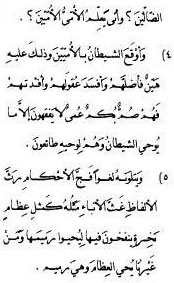 الضالين ؟ وأنى يعلم الأمي الأميين ؟ .
٤) وأوقع الشيطان بالأميين وذلك عليه
هين فأضلهم وأفسد عقولهم وأفئدتهم
فهم صم بكم عمي لا يفقهون إلا ما
يوحي الشيطان وهم لوحيه طائعون .
٥) ويتلونه لغوا فج الأحكام رث
الألفاظ غث الأنباء مثله كمثل عظام
نخرة ينفخون فيها ليحيوا رميمها ومن
غيرنا يحي العظام وهي رميم .